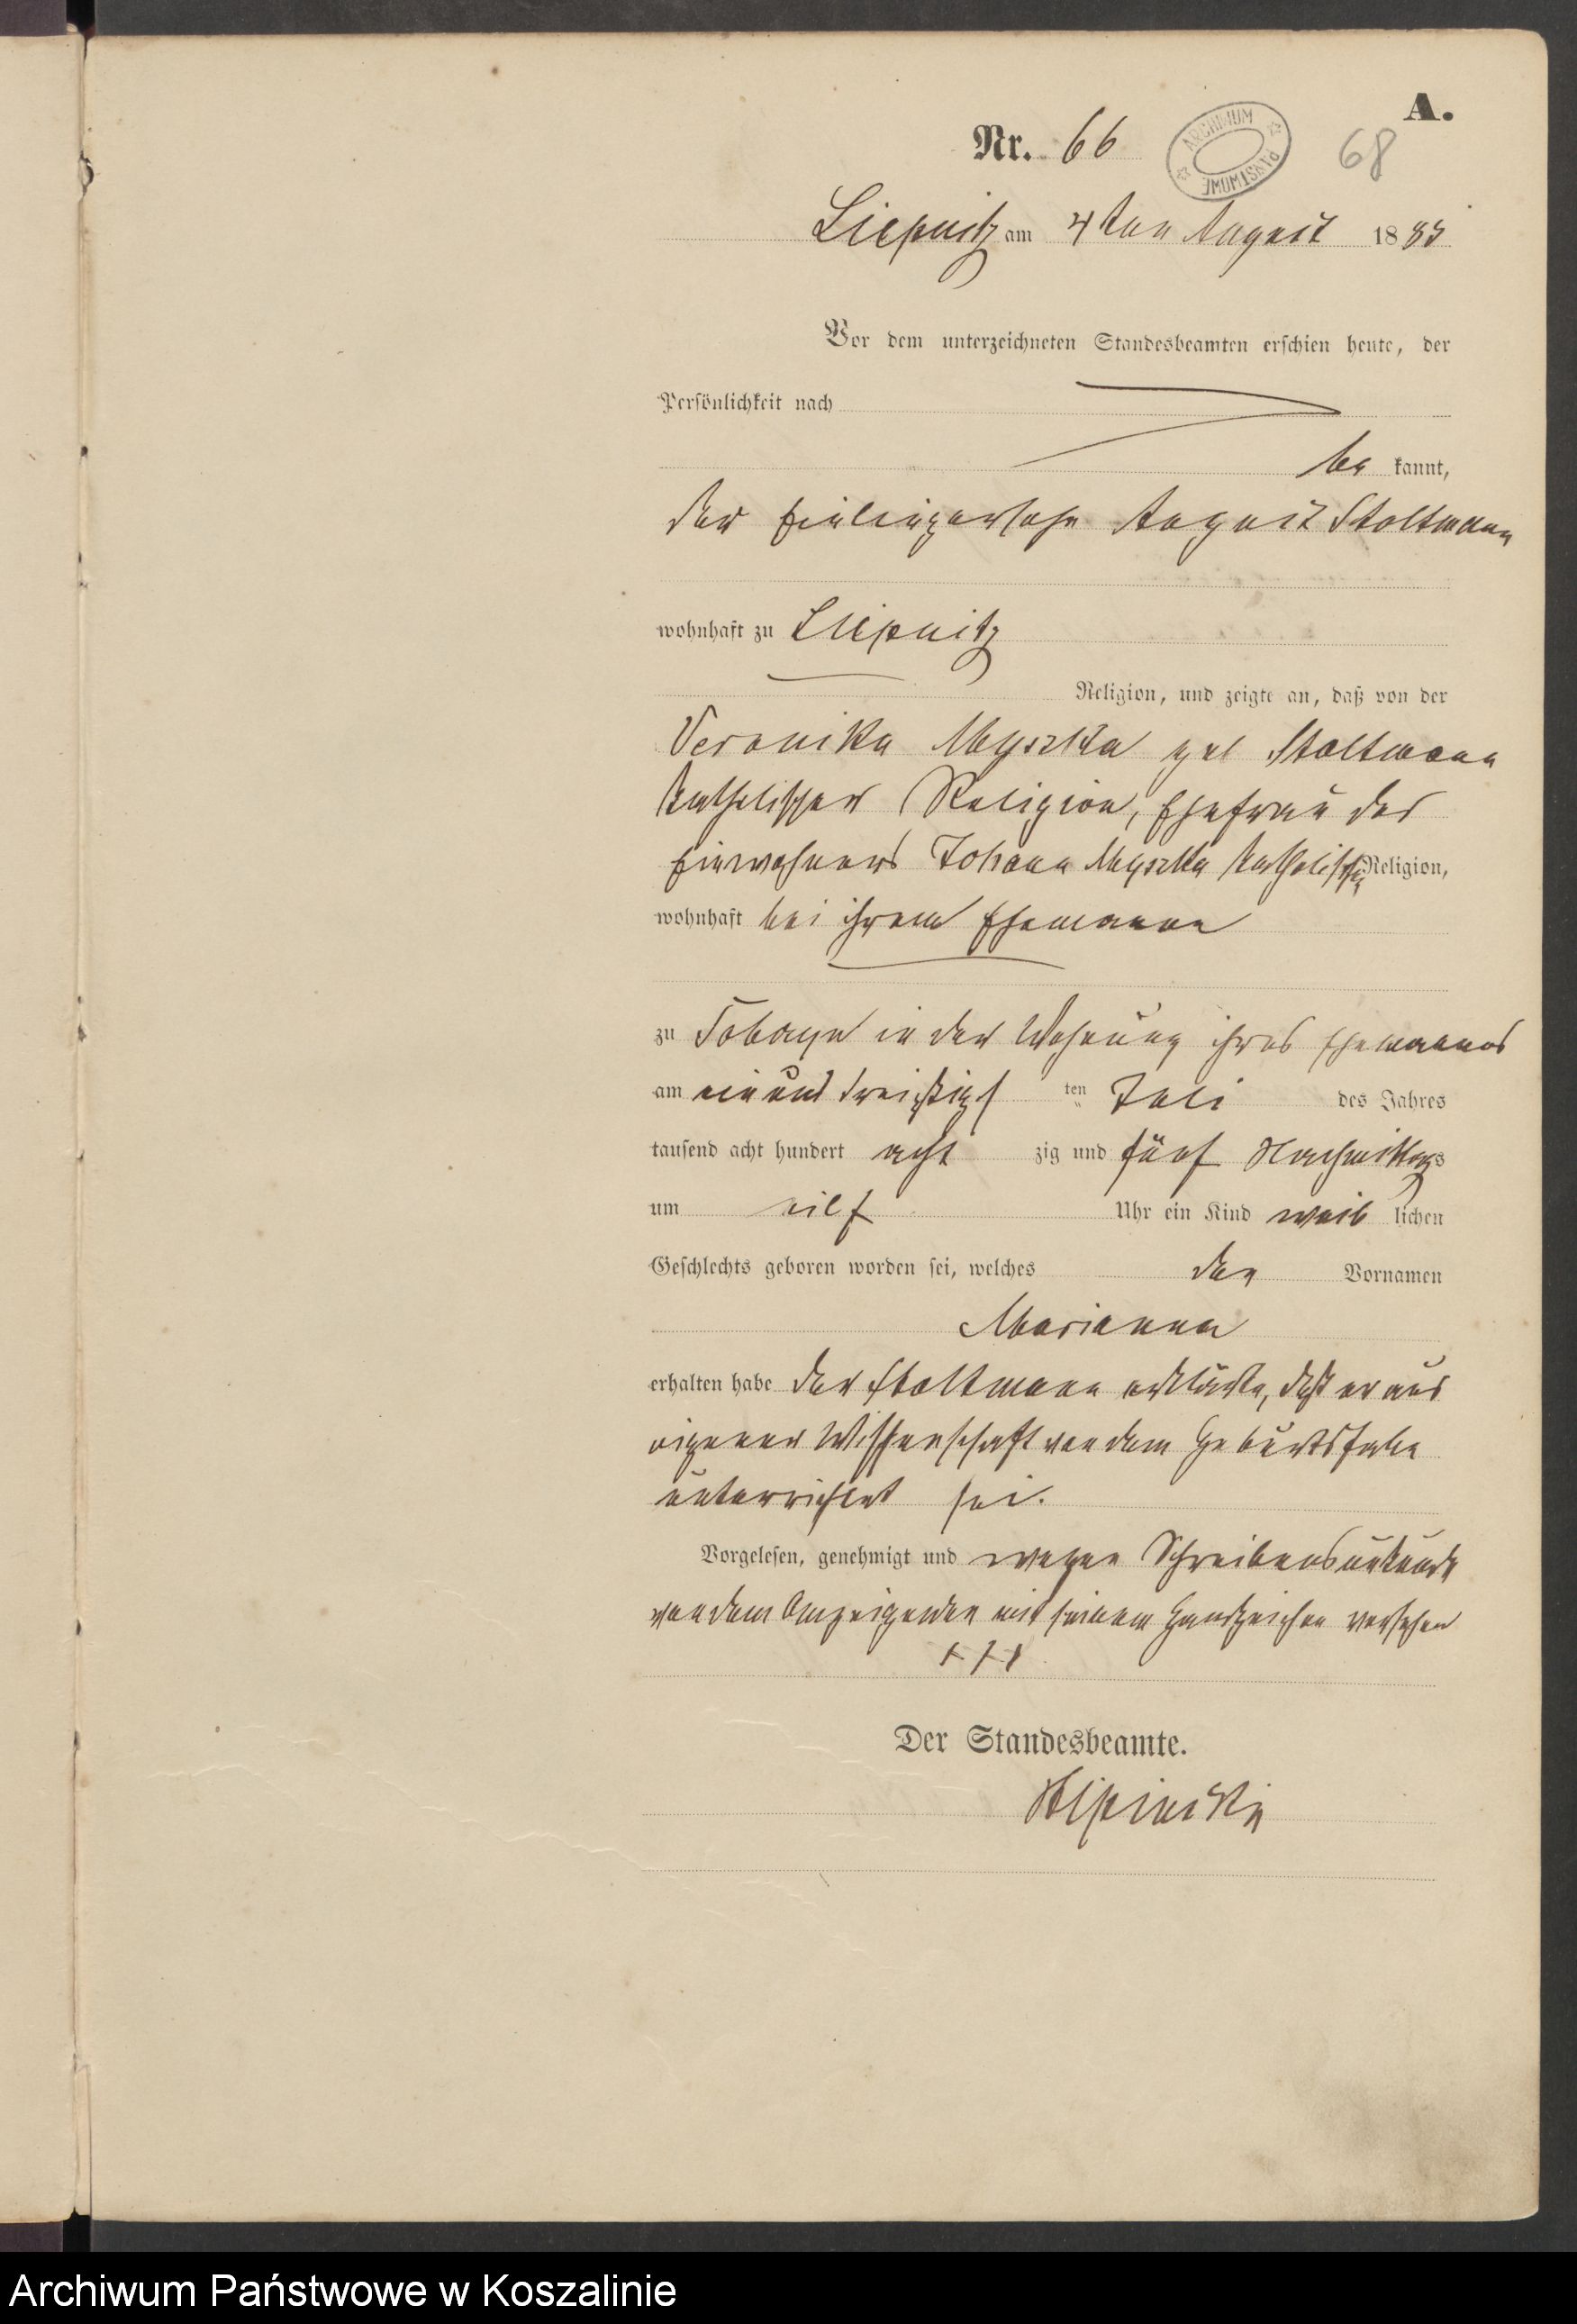 A.
Nr. 66
ARCHIWUM PAŃSTWOWE
68
Liepnitz am 4ten August 1885
Vor dem unterzeichneten Standesbeamten erschien heute, der
Persönlichkeit nach
be kannt,
der August Stoltmann
wohnhaft zu Liepnitz
Religion, und zeigte an, daß von der
Veronika Myszka geb Stoltmann
katholischer Religion, Ehefrau des
Einwohners Johann Myszka katholischer Religion,
wohnhaft bei ihrem Ehemanne
zu in der Wohnung ihres Ehemannes
am einunddreißigs ten Juli des Jahres
tausend acht hundert acht zig und fünf Nachmittags
um eilf Uhr ein Kind weib lichen
Geschlechts geboren worden sei, welches den Vornamen
Marianna
erhalten habe der Stoltmann erklärte, daß er aus
eigener Wissenschaft von dem Geburtsfalle
unterrichtet sei.
Vorgelesen, genehmigt und wegen Schreibensunkunde
von dem Anzeigenden mit seinem Handzeichen versehen
+++
Der Standesbeamte.
Archiwum Państwowe w Koszalinie